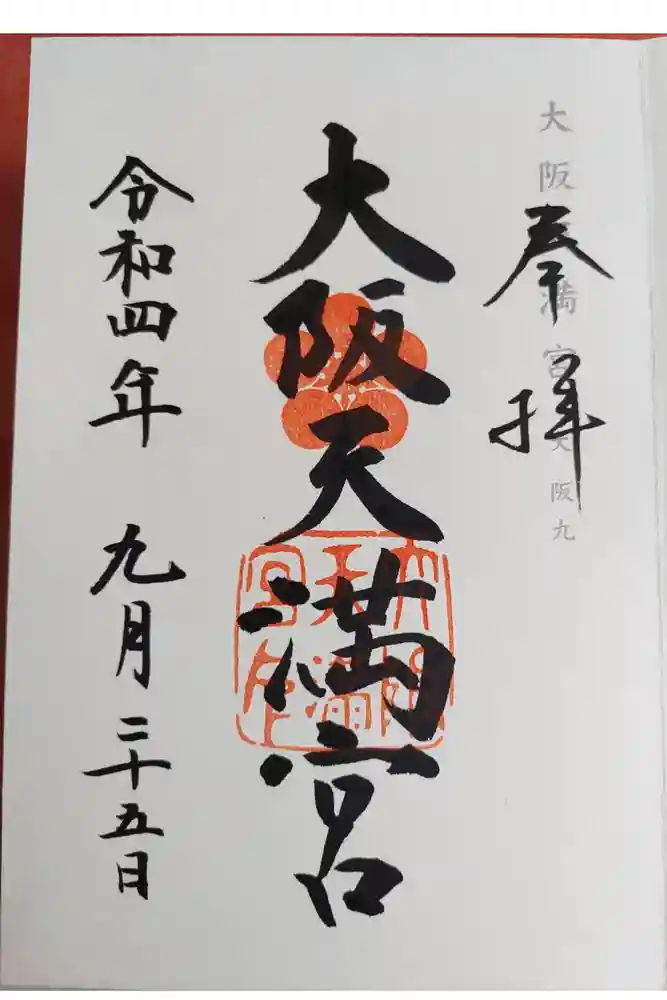 大阪天満宮 大阪九
奉拝
大阪天満宮
令和四年 九月二十五日